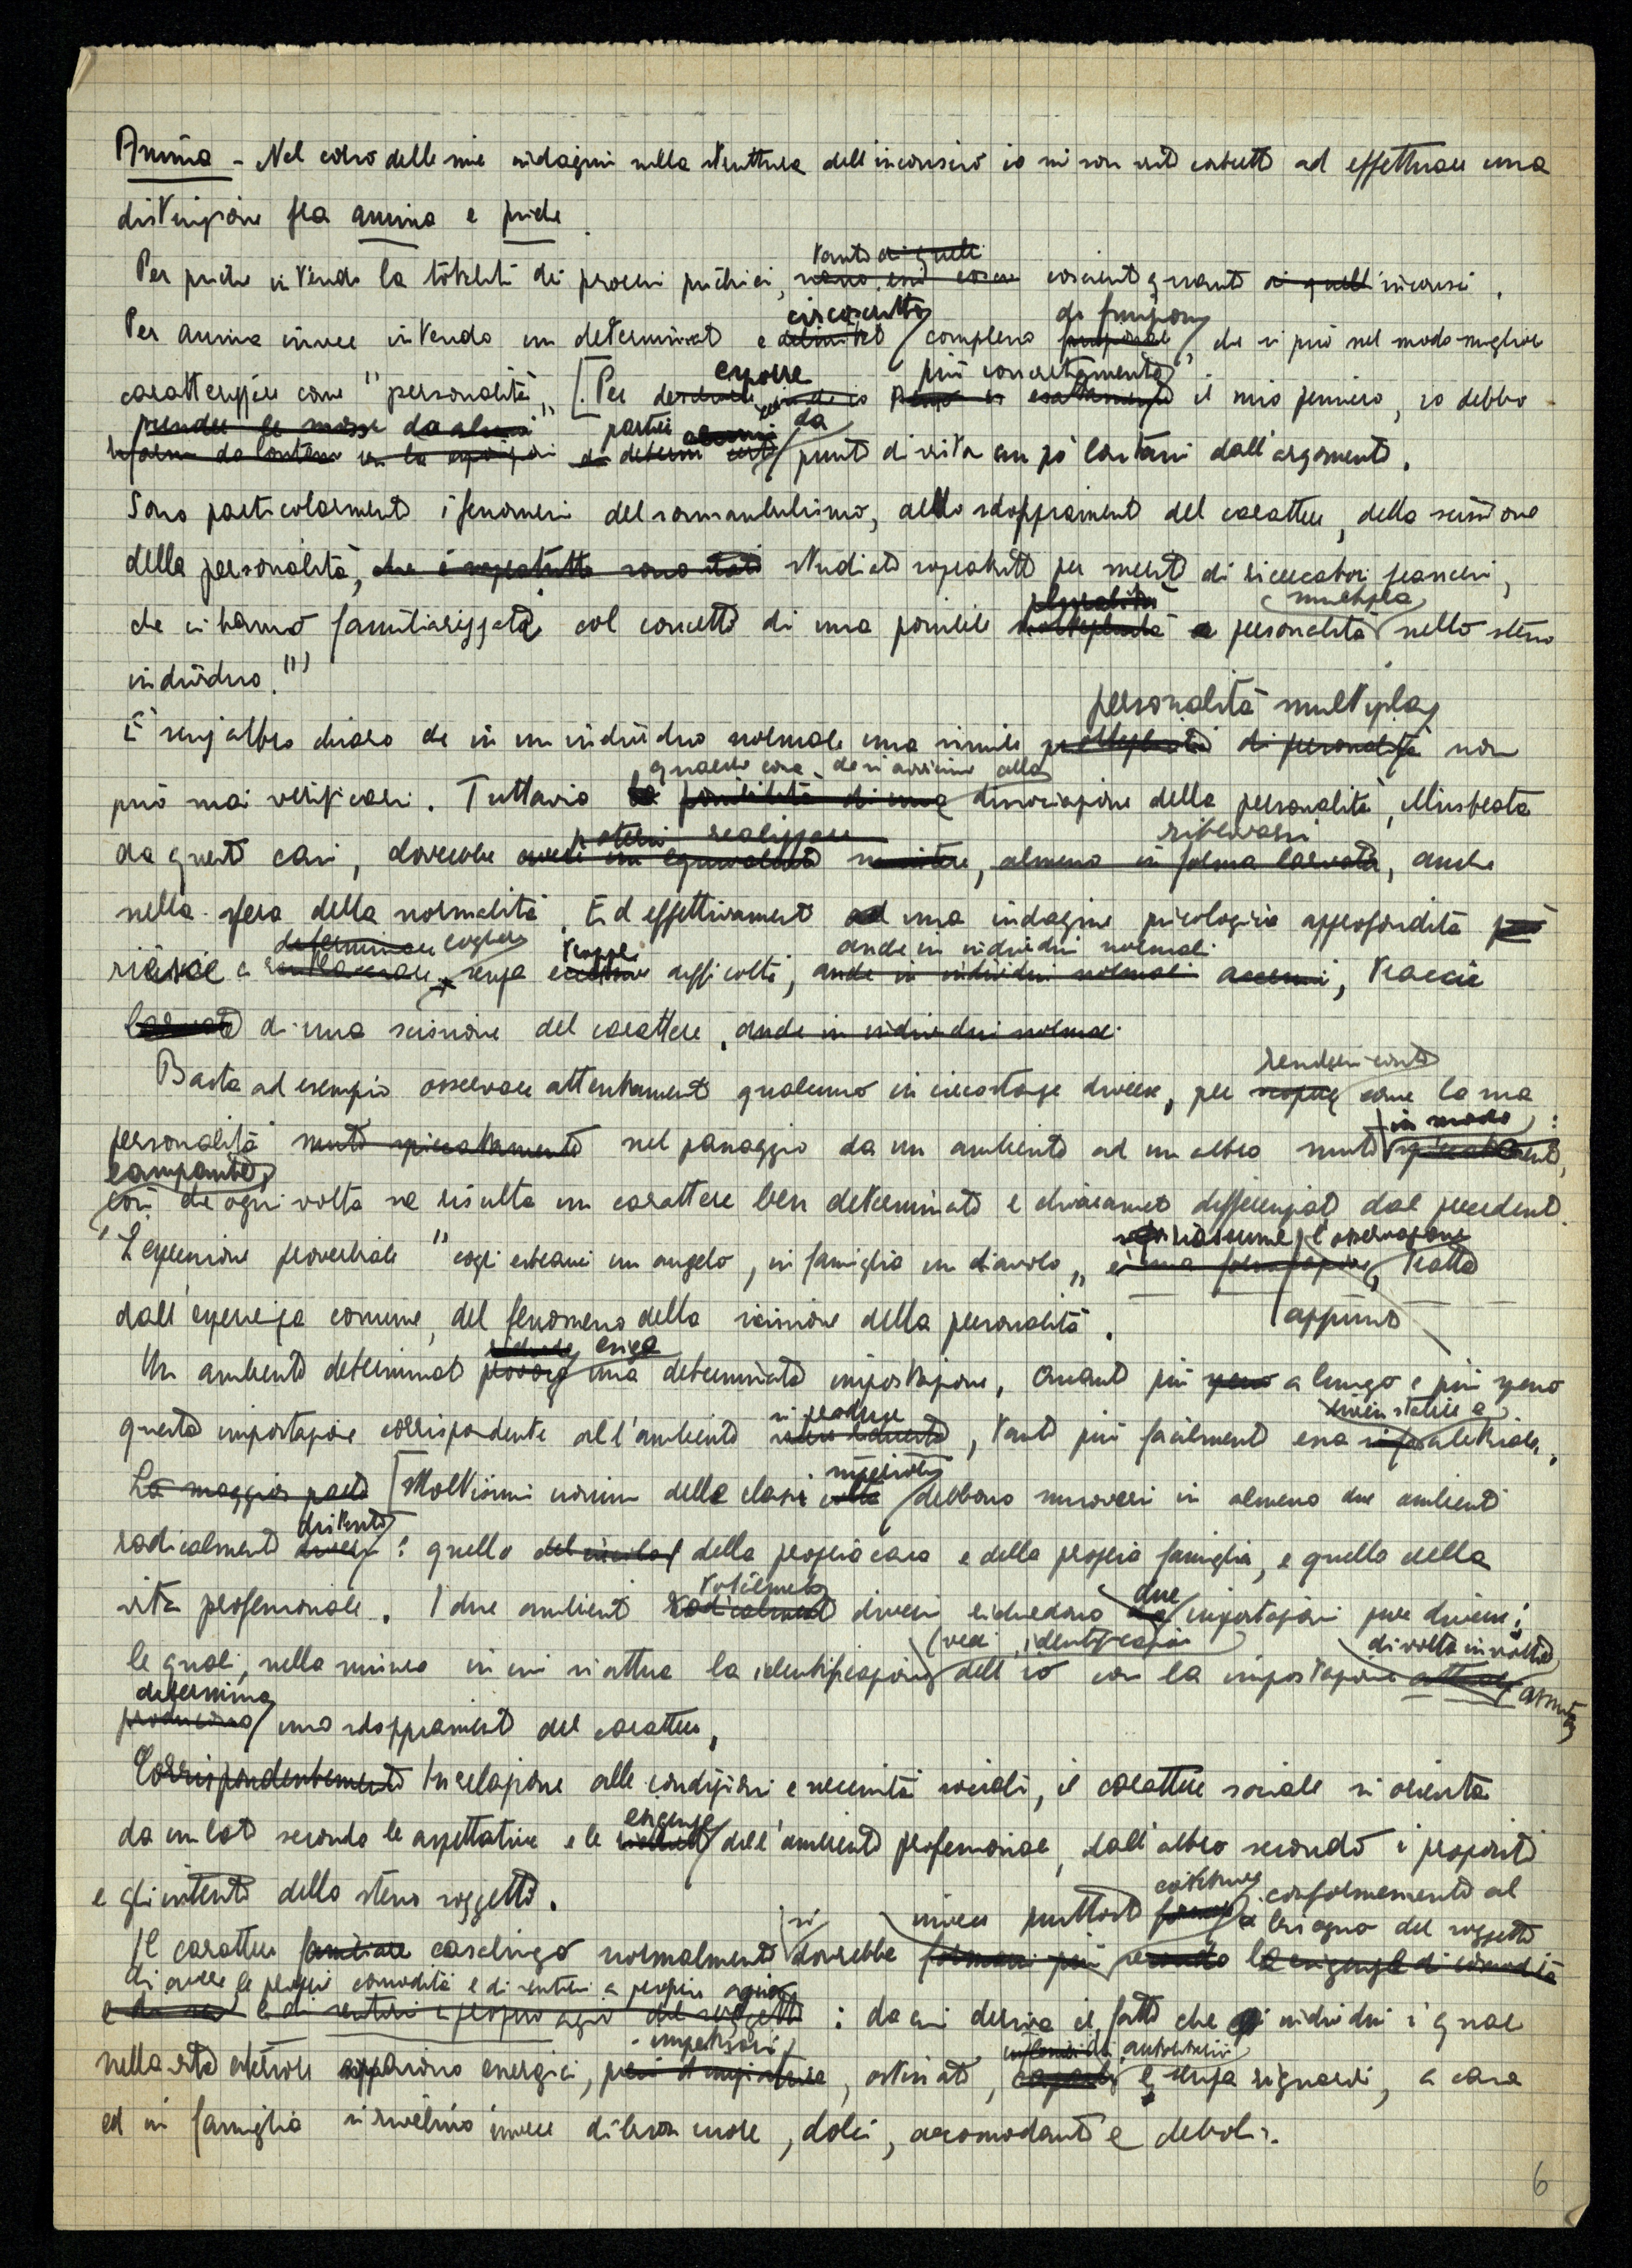 Anima - Nel corso delle mie indagini sulla struttura dell'inconscio io mi son visto costretto ad effettuare una
distinzione fra anima e psiche.
tanto di quelli
Per psiche intendo la totalità dei processi psichici, coscienti quanto di quelli inconsci.
circoscritto di funzioni
Per anima invece intendo un determinato e delimitato complesso che si può nel modo migliore
esporre più concretamente
caratterizzare come "personalità". [Per il mio pensiero, io debbo
prendere le mosse da alcuni partire da
punti di vista un po' lontani dall'argomento.
Sono particolarmente i fenomeni del sonnambulismo, dello sdoppiamento del carattere, della scissione
della personalità, che sono stati studiati sopratutto per merito di ricercatori francesi,
pluralità multipla
che ci hanno familiarizzato col concetto di una possibile molteplicità personalità nello stesso
individuo.
personalità multipla
È senz'altro chiaro che in un individuo normale una simile molteplicità di personalità non
qualche cosa che si avvicina alla
può mai verificarsi. Tuttavia la possibilità di una dissociazione della personalità, illustrata
potersi realizzare ritrovarsi
da questi casi, dovrebbe esistere, almeno in forma larvata, anche
nella sfera della normalità. Ed effettivamente ad una indagine psicologica approfondita può
determinare cogliere troppe anche in individui normali
riesce a rintracciare senza eccessive difficoltà, anche in individui normali accenni, traccie
larvate di una scissione del carattere, anche in individui normali.
rendersi conto
Basta ad esempio osservare attentamente qualcuno in circostanze diverse, per scoprire come la sua
in modo
personalità muti spiccatamente nel passaggio da un ambiente ad un altro muti spiccatamente,
lampante
così che ogni volta ne risulta un carattere ben determinato e chiaramente differenziato dal precedente.
riassume l'osservazione
L'espressione proverbiale "cogli estranei un angelo, in famiglia un diavolo" è una formulazione, tratta
appunto
dall'esperienza comune, del fenomeno della scissione della personalità.
richiede esige
Un ambiente determinato provoca una determinata impostazione. Quanto più a lungo e più spesso
si produce diviene stabile e
questa impostazione corrispondente all'ambiente viene richiesta, tanto più facilmente essa abituale.
superiori
La maggior parte [Moltissimi uomini delle classi colte debbono muoversi in almeno due ambienti
distinti
radicalmente diversi: quello del circolo della propria casa e della propria famiglia, e quello della
totalmente due
vita professionale. I due ambienti radicalmente diversi richiedono impostazioni pure diverse;
(vedi identificazione) di volta in volta
le quali, nella misura in cui si attua la identificazione dell'io con la impostazione attuale assunta
determina
producono uno sdoppiamento del carattere.
Corrispondentemente In relazione alle condizioni e necessità sociali, il carattere sociale si orienta
esigenze
da un lato secondo le aspettative e le richieste dell'ambiente professionale, dall'altro secondo i propositi
e gli intenti dello stesso soggetto.
si invece piuttosto costituire conformemente al bisogno del soggetto
Il carattere familiare casalingo normalmente dovrebbe formarsi più secondo le esigenze di comodità
di avere le proprie comodità e di sentirsi a proprio agio
e di sentirsi a proprio agio del soggetto: da cui deriva il fatto che individui i quali
nella vita esteriore appaiono energici, ostinati, caparbi e senza riguardi, a casa
ed in famiglia si rivelino invece di buon cuore, dolci, accomodanti e deboli.
6